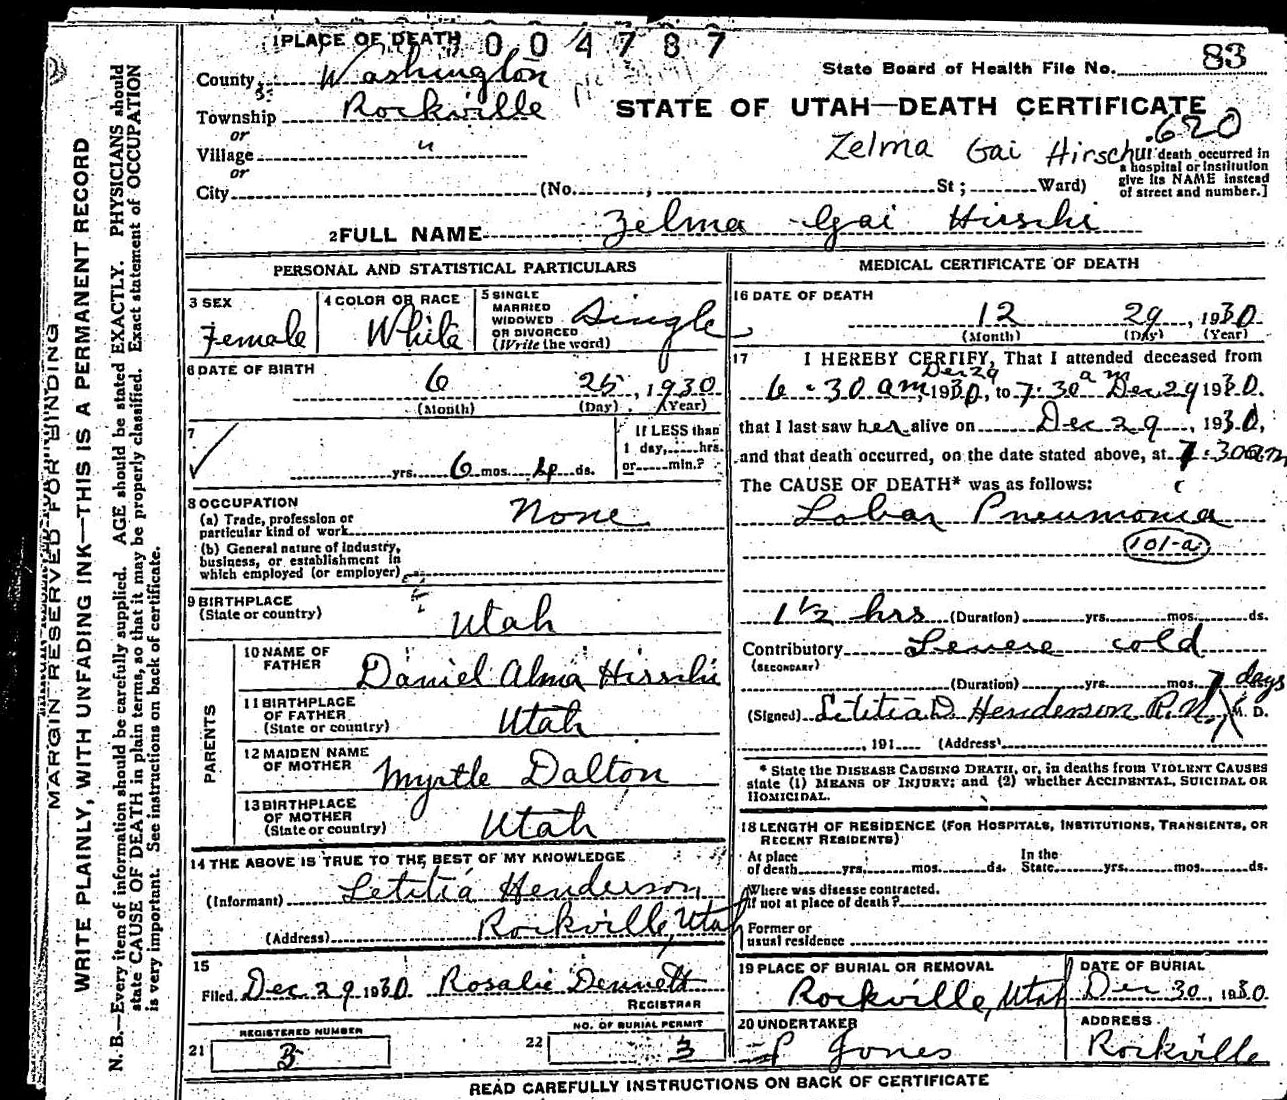 1 PLACE OF DEATH 004787
County Washington
State Board of Health File No. 83
Township Rockville
STATE OF UTAH—DEATH CERTIFICATE
or
.620
Village "
Zelma Gai Hirschi
[If death occurred in
a hospital or institution
give its NAME instead
of street and number.]
or
City (No. , St ; Ward)
2 FULL NAME Zelma Gai Hirschi
PERSONAL AND STATISTICAL PARTICULARS
3 SEX
Female
4 COLOR OR RACE
White
5 SINGLE
MARRIED
WIDOWED
OR DIVORCED
(Write the word)
Single
6 DATE OF BIRTH
6 25, 1930
(Month) (Day) (Year)
7
yrs. 6 mos. 4 ds.
If LESS than
1 day, hrs.
or min.?
8 OCCUPATION
(a) Trade, profession or
particular kind of work None
(b) General nature of industry,
business, or establishment in
which employed (or employer)
9 BIRTHPLACE
(State or country)
Utah
PARENTS
10 NAME OF
FATHER
Daniel Alma Hirschi
11 BIRTHPLACE
OF FATHER
(State or country)
Utah
12 MAIDEN NAME
OF MOTHER
Myrtle Dalton
13 BIRTHPLACE
OF MOTHER
(State or country)
Utah
14 THE ABOVE IS TRUE TO THE BEST OF MY KNOWLEDGE
(Informant) Letitia Henderson
(Address) Rockville, Utah
15
Filed Dec 29 1930 Rosalie Dennett
REGISTRAR
21 REGISTERED NUMBER
3
22 NO. OF BURIAL PERMIT
3
MEDICAL CERTIFICATE OF DEATH
16 DATE OF DEATH
12 29, 1930
(Month) (Day) (Year)
17 I HEREBY CERTIFY, That I attended deceased from
6:30 am, Dec 29 1930, to 7:30 am Dec 29 1930.
that I last saw her alive on Dec 29, 1930,
and that death occurred, on the date stated above, at 7:30 am
The CAUSE OF DEATH* was as follows:
Lobar Pneumonia
101-a
1 1/2 hrs (Duration) yrs. mos. ds.
Contributory Severe cold
(SECONDARY)
(Duration) yrs. mos. 7 days
(Signed) Letitia D Henderson R.N. M. D.
, 191 (Address)
* State the DISEASE CAUSING DEATH, or, in deaths from VIOLENT CAUSES
state (1) MEANS OF INJURY; and (2) whether ACCIDENTAL, SUICIDAL OR
HOMICIDAL.
18 LENGTH OF RESIDENCE (FOR HOSPITALS, INSTITUTIONS, TRANSIENTS, OR
RECENT RESIDENTS)
At place
of death yrs. mos. ds.
In the
State yrs. mos. ds.
Where was disease contracted.
if not at place of death?
Former or
usual residence
19 PLACE OF BURIAL OR REMOVAL
Rockville, Utah
DATE OF BURIAL
Dec 30, 1930.
20 UNDERTAKER
Jones
ADDRESS
Rockville
READ CAREFULLY INSTRUCTIONS ON BACK OF CERTIFICATE
MARGIN RESERVED FOR BINDING
WRITE PLAINLY, WITH UNFADING INK—THIS IS A PERMANENT RECORD
N. B.—Every item of information should be carefully supplied. AGE should be stated EXACTLY. PHYSICIANS should
state CAUSE OF DEATH in plain terms, so that it may be properly classified. Exact statement of OCCUPATION
is very important. See instructions on back of certificate.